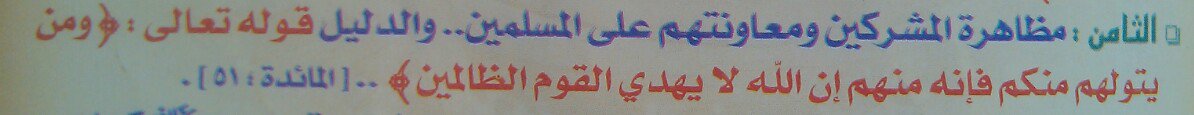 ▫ الثامن : مظاهرة المشركين ومعاونتهم على المسلمين.. والدليل قوله تعالى : ﴿ ومن
يتولهم منكم فإنه منهم إن الله لا يهدي القوم الظالمين ﴾ ..[ المائدة : ٥١ ] .